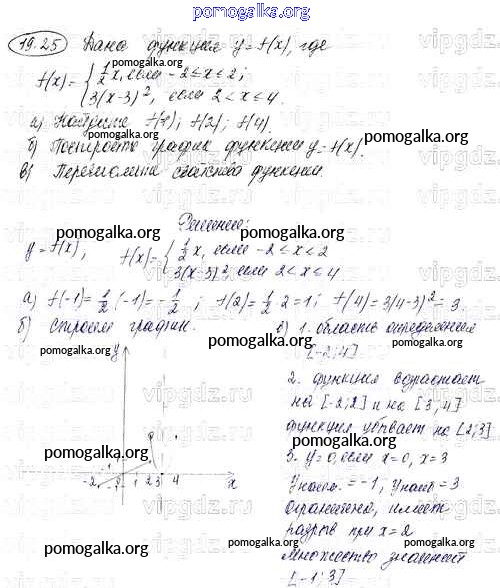 pomogalka.org
19.25 Дана функция y = f(x), где
f(x) = { 1/2 x, если -2 ≤ x ≤ 2;
3(x-3)², если 2 < x ≤ 4.
pomogalka.org
а) Найдите f(-1); f(2); f(4).
pomogalka.org
б) Постройте график функции y = f(x).
в) Перечислите свойства функции.
pomogalka.org
Решение:
y = f(x), f(x) = { 1/2 x, если -2 ≤ x ≤ 2
pomogalka.org pomogalka.org
3(x-3)², если 2 < x ≤ 4
а) f(-1) = 1/2 · (-1) = -1/2; f(2) = 1/2 · 2 = 1; f(4) = 3(4-3)² = 3.
б) Строим график. в) 1. область определения
pomogalka.org pomogalka.org
y [-2; 4]
2. функция возрастает
на [-2; 2] и на [3, 4]
pomogalka.org pomogalka.org
функция убывает на [2; 3]
3. y = 0, если x = 0, x = 3
-2 -1 1 2 3 4 x
y наим. = -1; y наиб = 3
pomogalka.org
ограничена, имеет
разрыв при x = 2
pomogalka.org pomogalka.org
множество значений
[-1; 3]
pomogalka.org pomogalka.org
vipgdz.ru